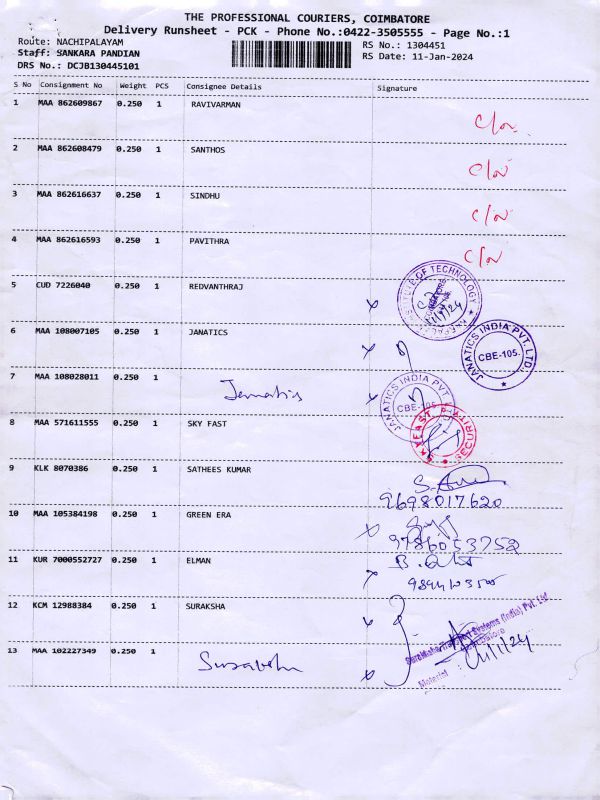 THE PROFESSIONAL COURIERS, COIMBATORE
Delivery Runsheet - PCK - Phone No.:0422-3505555 - Page No.:1
Route: NACHIPALAYAM
RS No.: 1304451
Staff: SANKARA PANDIAN
RS Date: 11-Jan-2024
DRS No.: DCJB130445101
S No Consignment No Weight PCS Consignee Details Signature
1 MAA 862609867 0.250 1 RAVIVARMAN
2 MAA 862608479 0.250 1 SANTHOS
3 MAA 862616637 0.250 1 SINDHU
4 MAA 862616593 0.250 1 PAVITHRA
5 CUD 7226040 0.250 1 REDVANTHRAJ
OF TECHNOLOGY
6 MAA 108007105 0.250 1 JANATICS
JANATICS INDIA PVT. LTD.
CBE-105.
7 MAA 108028011 0.250 1 Janatics
JANATICS INDIA PVT LTD
CBE-105
8 MAA 571611555 0.250 1 SKY FAST
SECURITY
9 KLK 8070386 0.250 1 SATHEES KUMAR
9698017620
10 MAA 105384198 0.250 1 GREEN ERA
9786053752
11 KUR 7000552727 0.250 1 ELMAN
12 KCM 12988384 0.250 1 SURAKSHA
Systems (India) Pvt. Ltd
13 MAA 102227349 0.250 1
Material